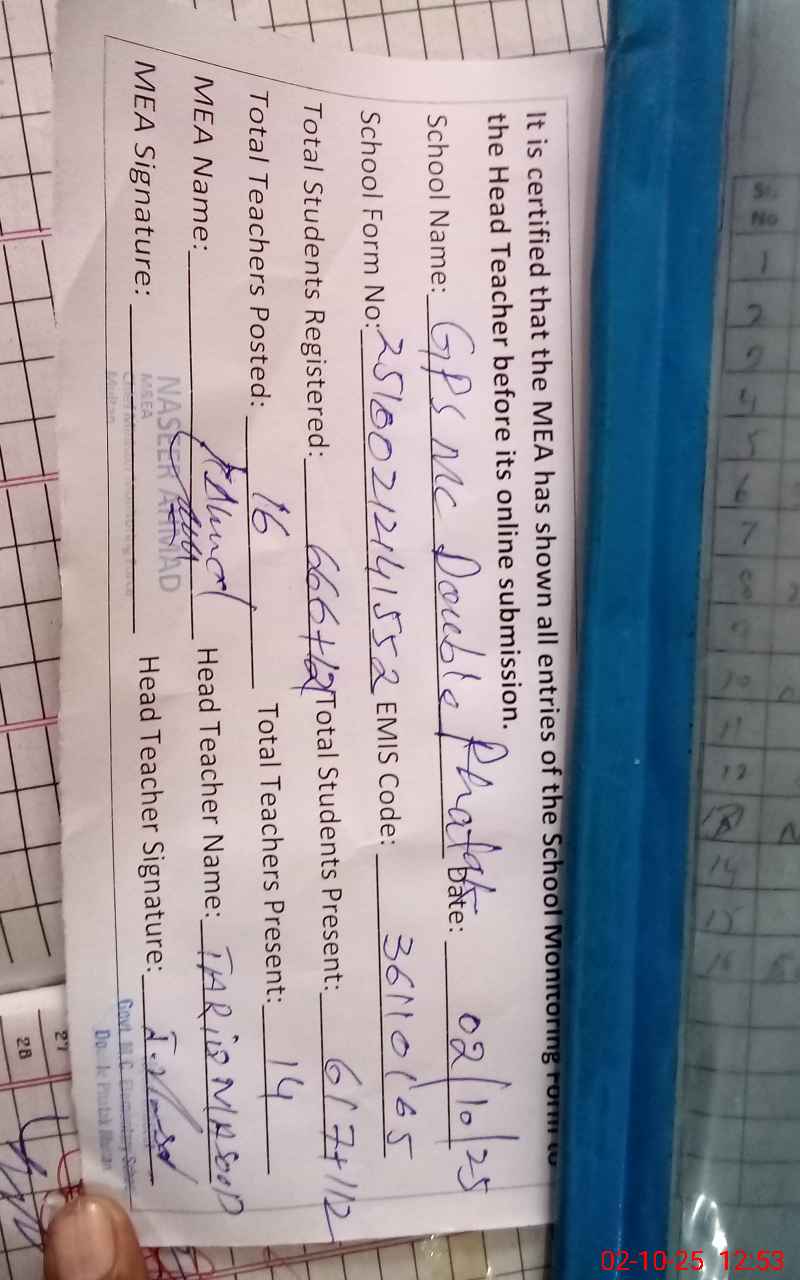 It is certified that the MEA has shown all entries of the School Monitoring Form to
the Head Teacher before its online submission.
School Name: GPS MC Double Phatak Date: 02/10/25
School Form No: 25100212141552 EMIS Code: 36110165
Total Students Registered: 666+121 Total Students Present: 617+112
Total Teachers Posted: 16 Total Teachers Present: 14
MEA Name: N. Ahmad Head Teacher Name: TARIQ MASOOD
MEA Signature: Head Teacher Signature:
NASEER AHMAD
M&EA
Multan
Govt. M.C. Elementary School
Double Phatak Multan
Sr.
No
1
2
3
4
5
6
7
8
9
10
11
12
13
14
15
16
27
28
02-10-25 12:53